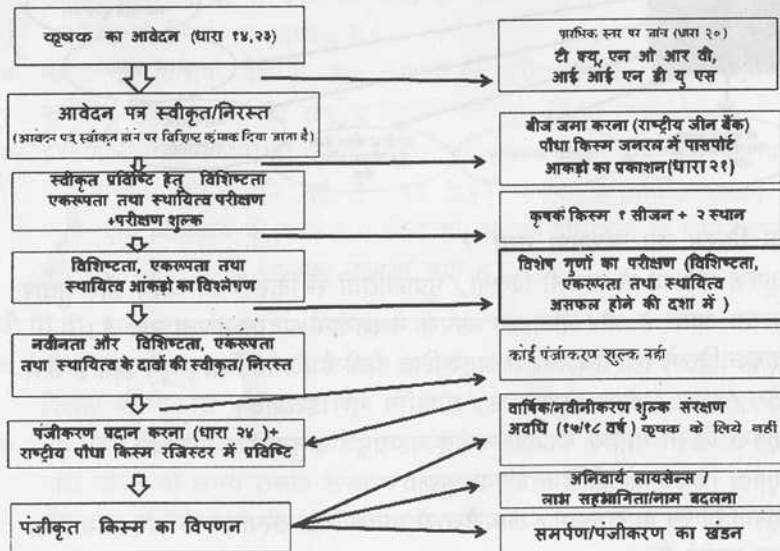 कृषक का आवेदन (धारा १४,२३)
आवेदन पत्र स्वीकृत/निरस्त
(आवेदन पत्र स्वीकृत होने पर विशिष्ट क्रमांक दिया जाता है)
स्वीकृत प्रविष्टि हेतु विशिष्टता
एकरूपता तथा स्थायित्व परीक्षण
+परीक्षण शुल्क
विशिष्टता, एकरूपता तथा
स्थायित्व आंकडो का विश्लेषण
नवीनता और विशिष्टता, एकरूपता
तथा स्थायित्व के दावों की स्वीकृत/ निरस्त
पंजीकरण प्रदान करना (धारा २४ )+
राष्ट्रीय पौधा किस्म रजिस्टर में प्रविष्टि
पंजीकृत किस्म का विपणन
प्रारंभिक स्तर पर जांच (धारा २०)
टी क्यू, एन ओ आर वी,
आई आई एन डी यु एस
बीज जमा करना (राष्ट्रीय जीन बैंक)
पौधा किस्म जनरल में पासपोर्ट
आकडो का प्रकाशन(धारा २१)
कृषक किस्म १ सीजन + २ स्थान
विशेष गुणों का परीक्षण (विशिष्टता,
एकरूपता तथा स्थायित्व
असफल होने की दशा में )
कोई पंजीकरण शुल्क नहीं
वार्षिक/नवीनीकरण शुल्क संरक्षण
अवधि (१५/१८ वर्ष ) कृषक के लिये नहीं
अनिवार्य लायसेन्स ,
लाभ सहभागिता/नाम बदलना
समर्पण/पंजीकरण का खंडन